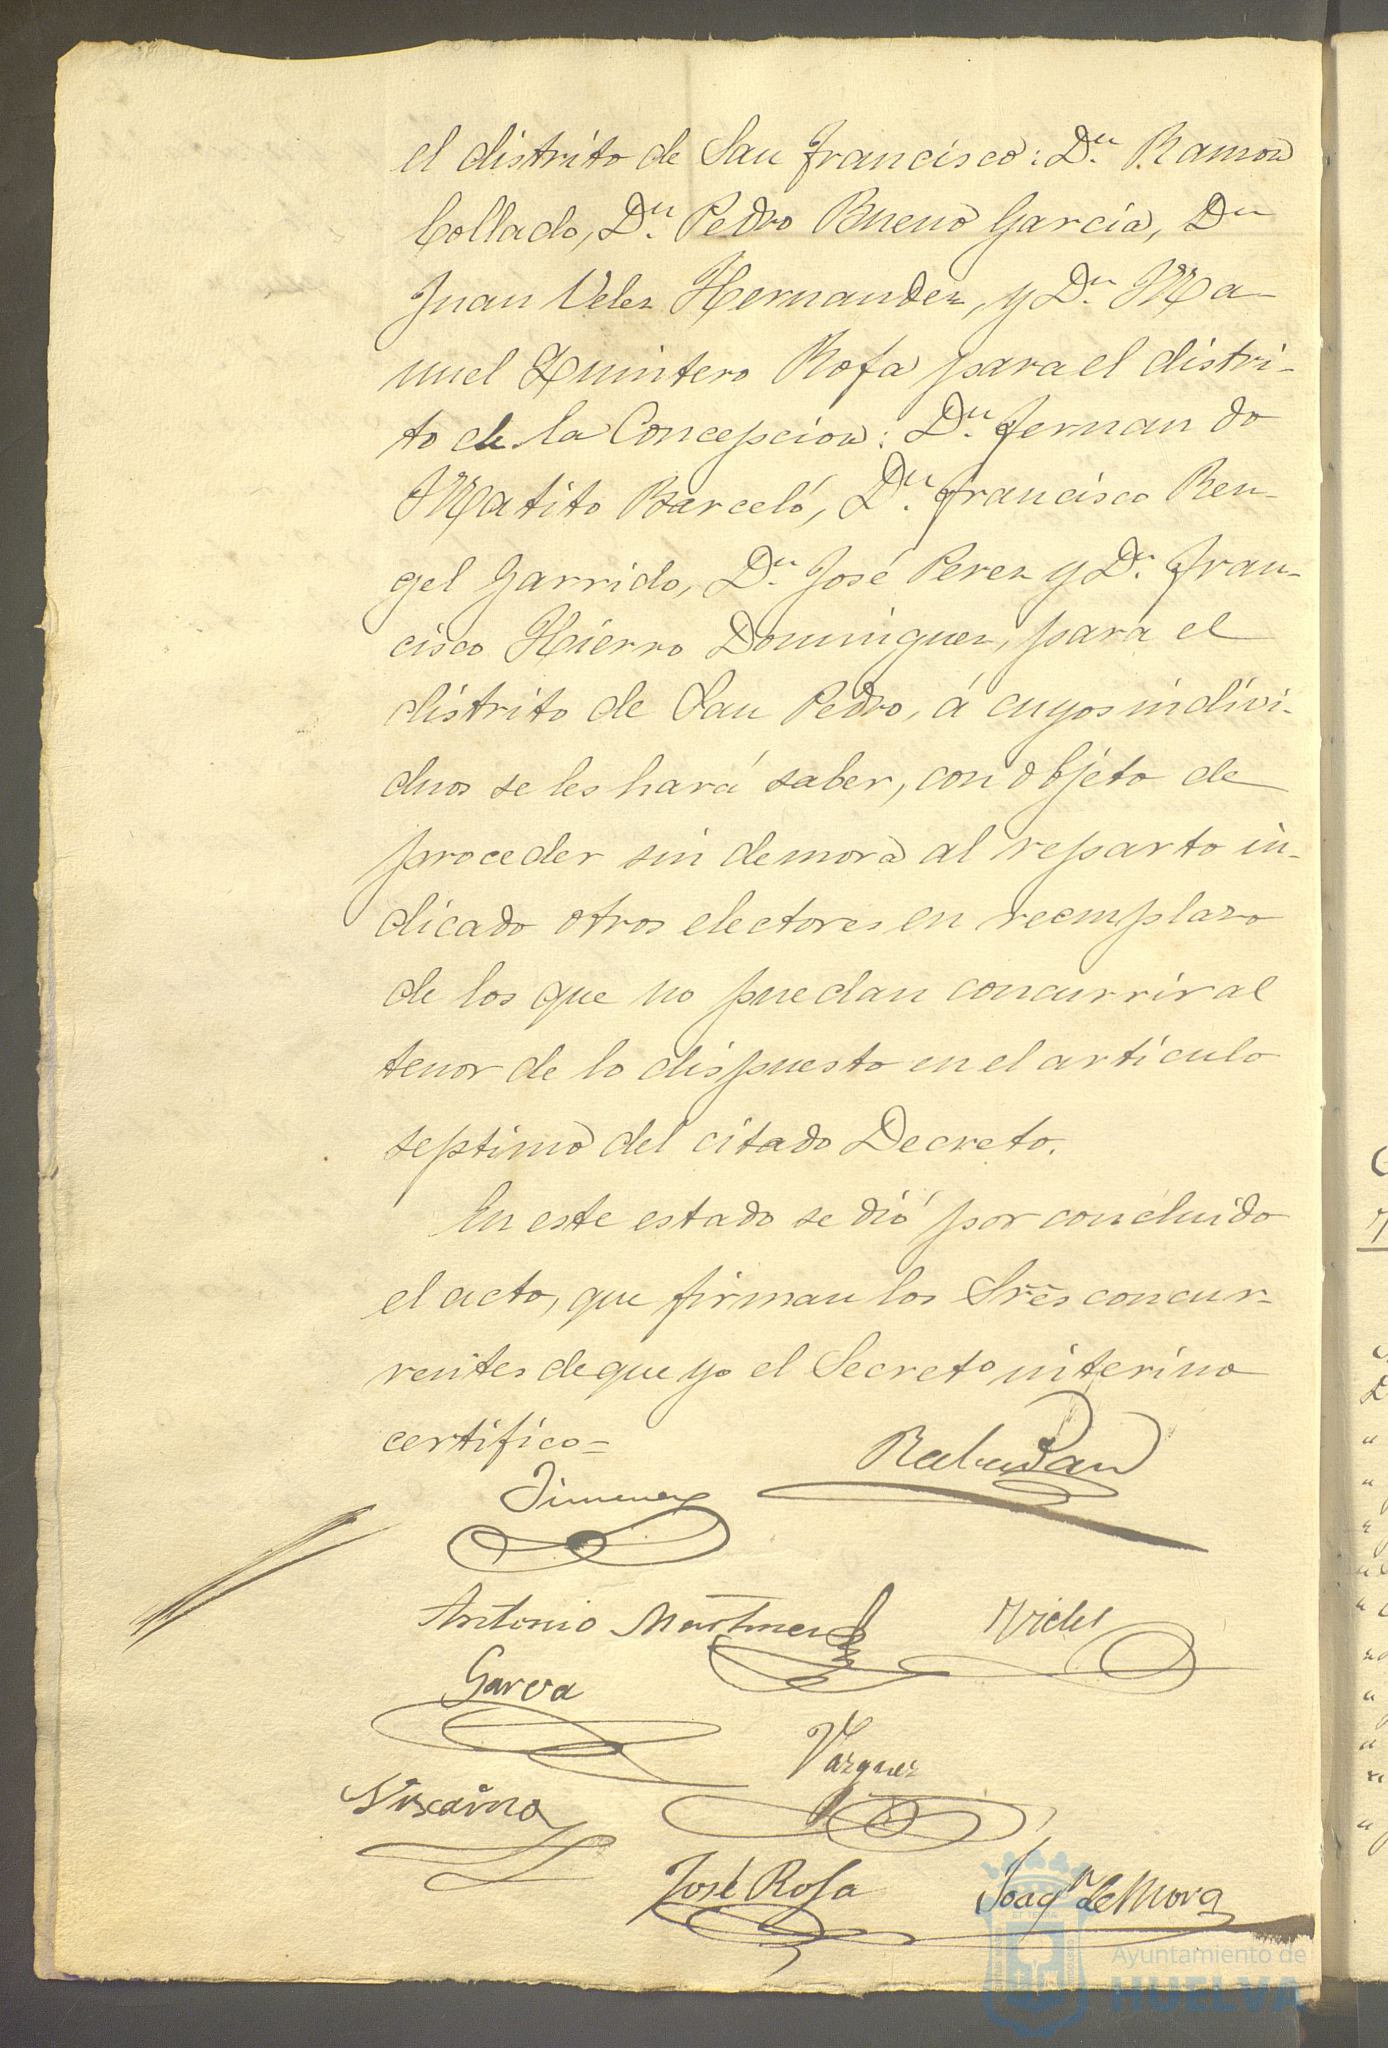 el distrito de San Francisco: Dn. Ramon
Collado, Dn. Pedro Bueno Garcia, Dn
Juan Velez Hernandez, y Dn. Ma-
nuel Quintero Rofa para el distri-
to de la Concepcion: Dn. Fernando
Matito Barceló, Dn. Francisco Ren-
gel Garrido, Dn. José Perez y Dn. Fran-
cisco Hierro Dominguez, para el
distrito de San Pedro, á cuyos indivi-
duos se les hará saber, con objeto de
proceder sin demora al reparto in-
dicado otros electores en reemplazo
de los que no puedan concurrir al
tenor de lo dispuesto en el artículo
septimo del citado Decreto.
En este estado se dió por concluido
el acto, que firman los Sres concur-
rentes de que yo el Secreto interino
certifico=
Rabadan
Jimenez
Antonio Martinez
García
Vazquez
Vizcaino
José Rofa
Joaqn de Mora
Ayuntamiento de
HUELVA